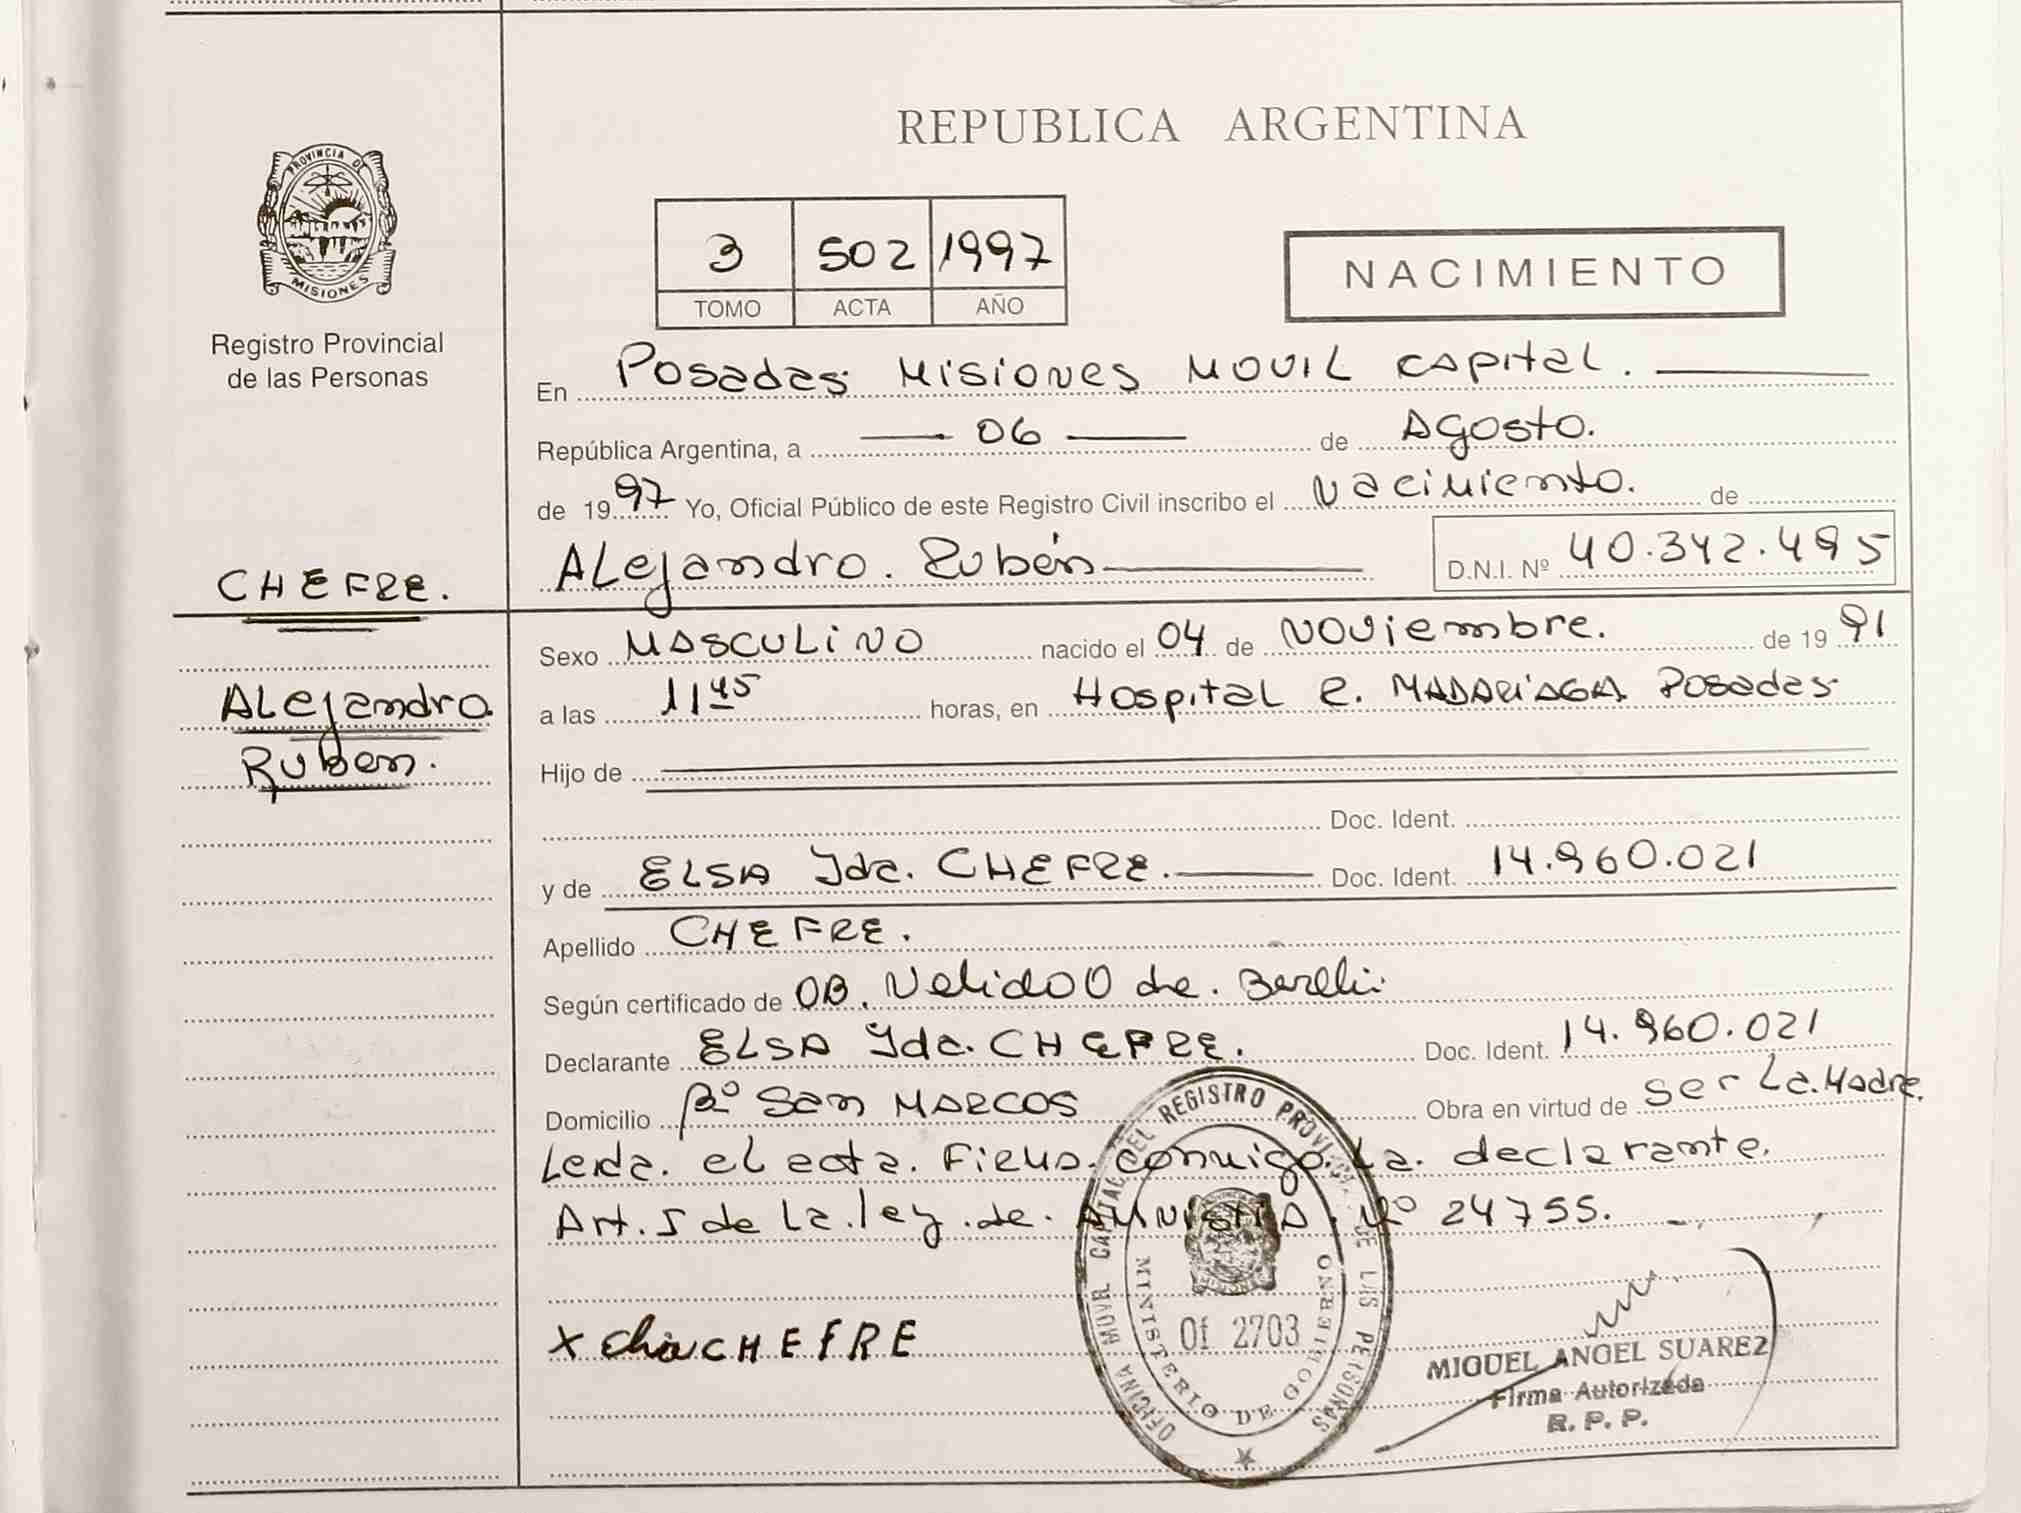 PROVINCIA DE
MISIONES
Registro Provincial
de las Personas
CHEFRE.
Alejandro
Ruben.
REPUBLICA ARGENTINA
3 502 1997
TOMO ACTA AÑO
NACIMIENTO
En Posadas Misiones Movil Capital.
República Argentina, a 06 de Agosto.
de 1997 Yo, Oficial Público de este Registro Civil inscribo el Nacimiento. de
Alejandro. Rubén D.N.I. Nº 40.342.495
Sexo MASCULINO nacido el 04 de Noviembre. de 1991
a las 11 45 horas, en Hospital R. MADARIAGA Posadas
Hijo de
Doc. Ident.
y de ELSA Ida. CHEFRE. Doc. Ident. 14.960.021
Apellido CHEFRE.
Según certificado de OB. de.
Declarante ELSA Ida. CHEFRE. Doc. Ident. 14.960.021
Domicilio Bº San MARCOS Obra en virtud de ser La. Madre.
Leida. el acta. Firma. conmigo. La. declarante.
Art. 5 de La. ley. de. AMNISTIA. Nº 24755.
X CHEFRE
OFICINA MOVIL CAPITAL DEL REGISTRO PROVINCIAL DE LAS PERSONAS
MINISTERIO DE GOBIERNO
Of 2703
MIGUEL ANGEL SUAREZ
Firma Autorizada
R. P. P.